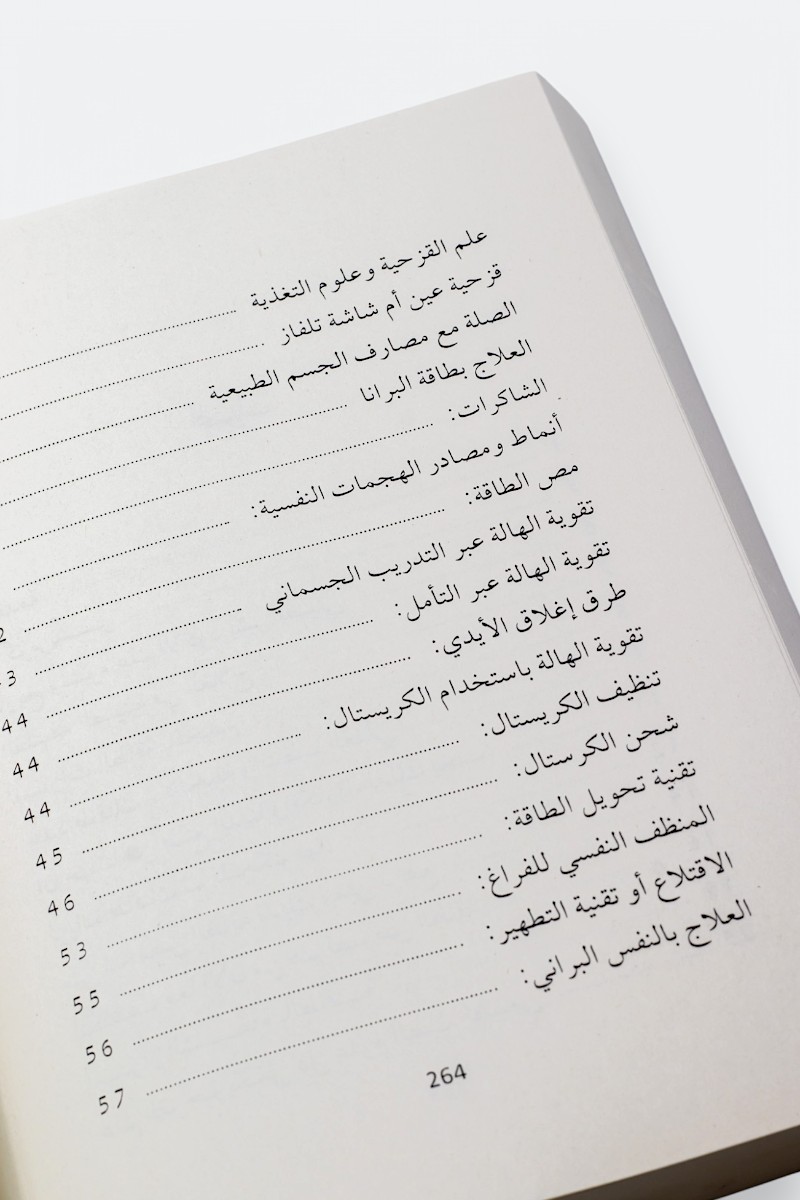 علم القزحية وعلوم التغذية ........
قزحية عين أم شاشة تلفاز ........
الصلة مع مصارف الجسم الطبيعية ........
العلاج بطاقة البرانا ........
الشاكرات: ........
أنماط ومصادر الهجمات النفسية: ........
مص الطاقة: ........ 2
تقوية الهالة عبر التدريب الجسماني ........ 3
تقوية الهالة عبر التأمل: ........ 44
طرق إغلاق الأيدي: ........ 44
تقوية الهالة باستخدام الكريستال: ........ 44
تنظيف الكريستال: ........ 45
شحن الكرستال: ........ 46
تقنية تحويل الطاقة: ........ 53
المنظف النفسي للفراغ: ........ 55
الاقتلاع أو تقنية التطهير: ........ 56
العلاج بالنفس البراني: ........ 57
264